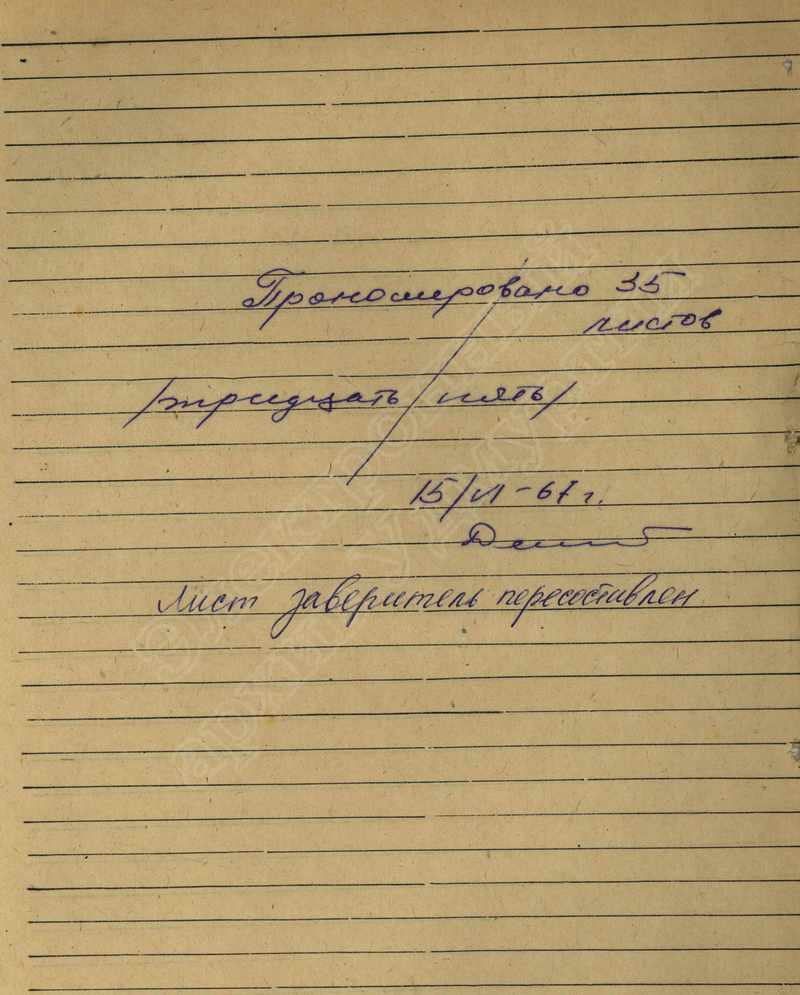 Прономеровано 35
листов
/тридцать пять/
15/VI-67 г.
Лист заверитель пересоставлен